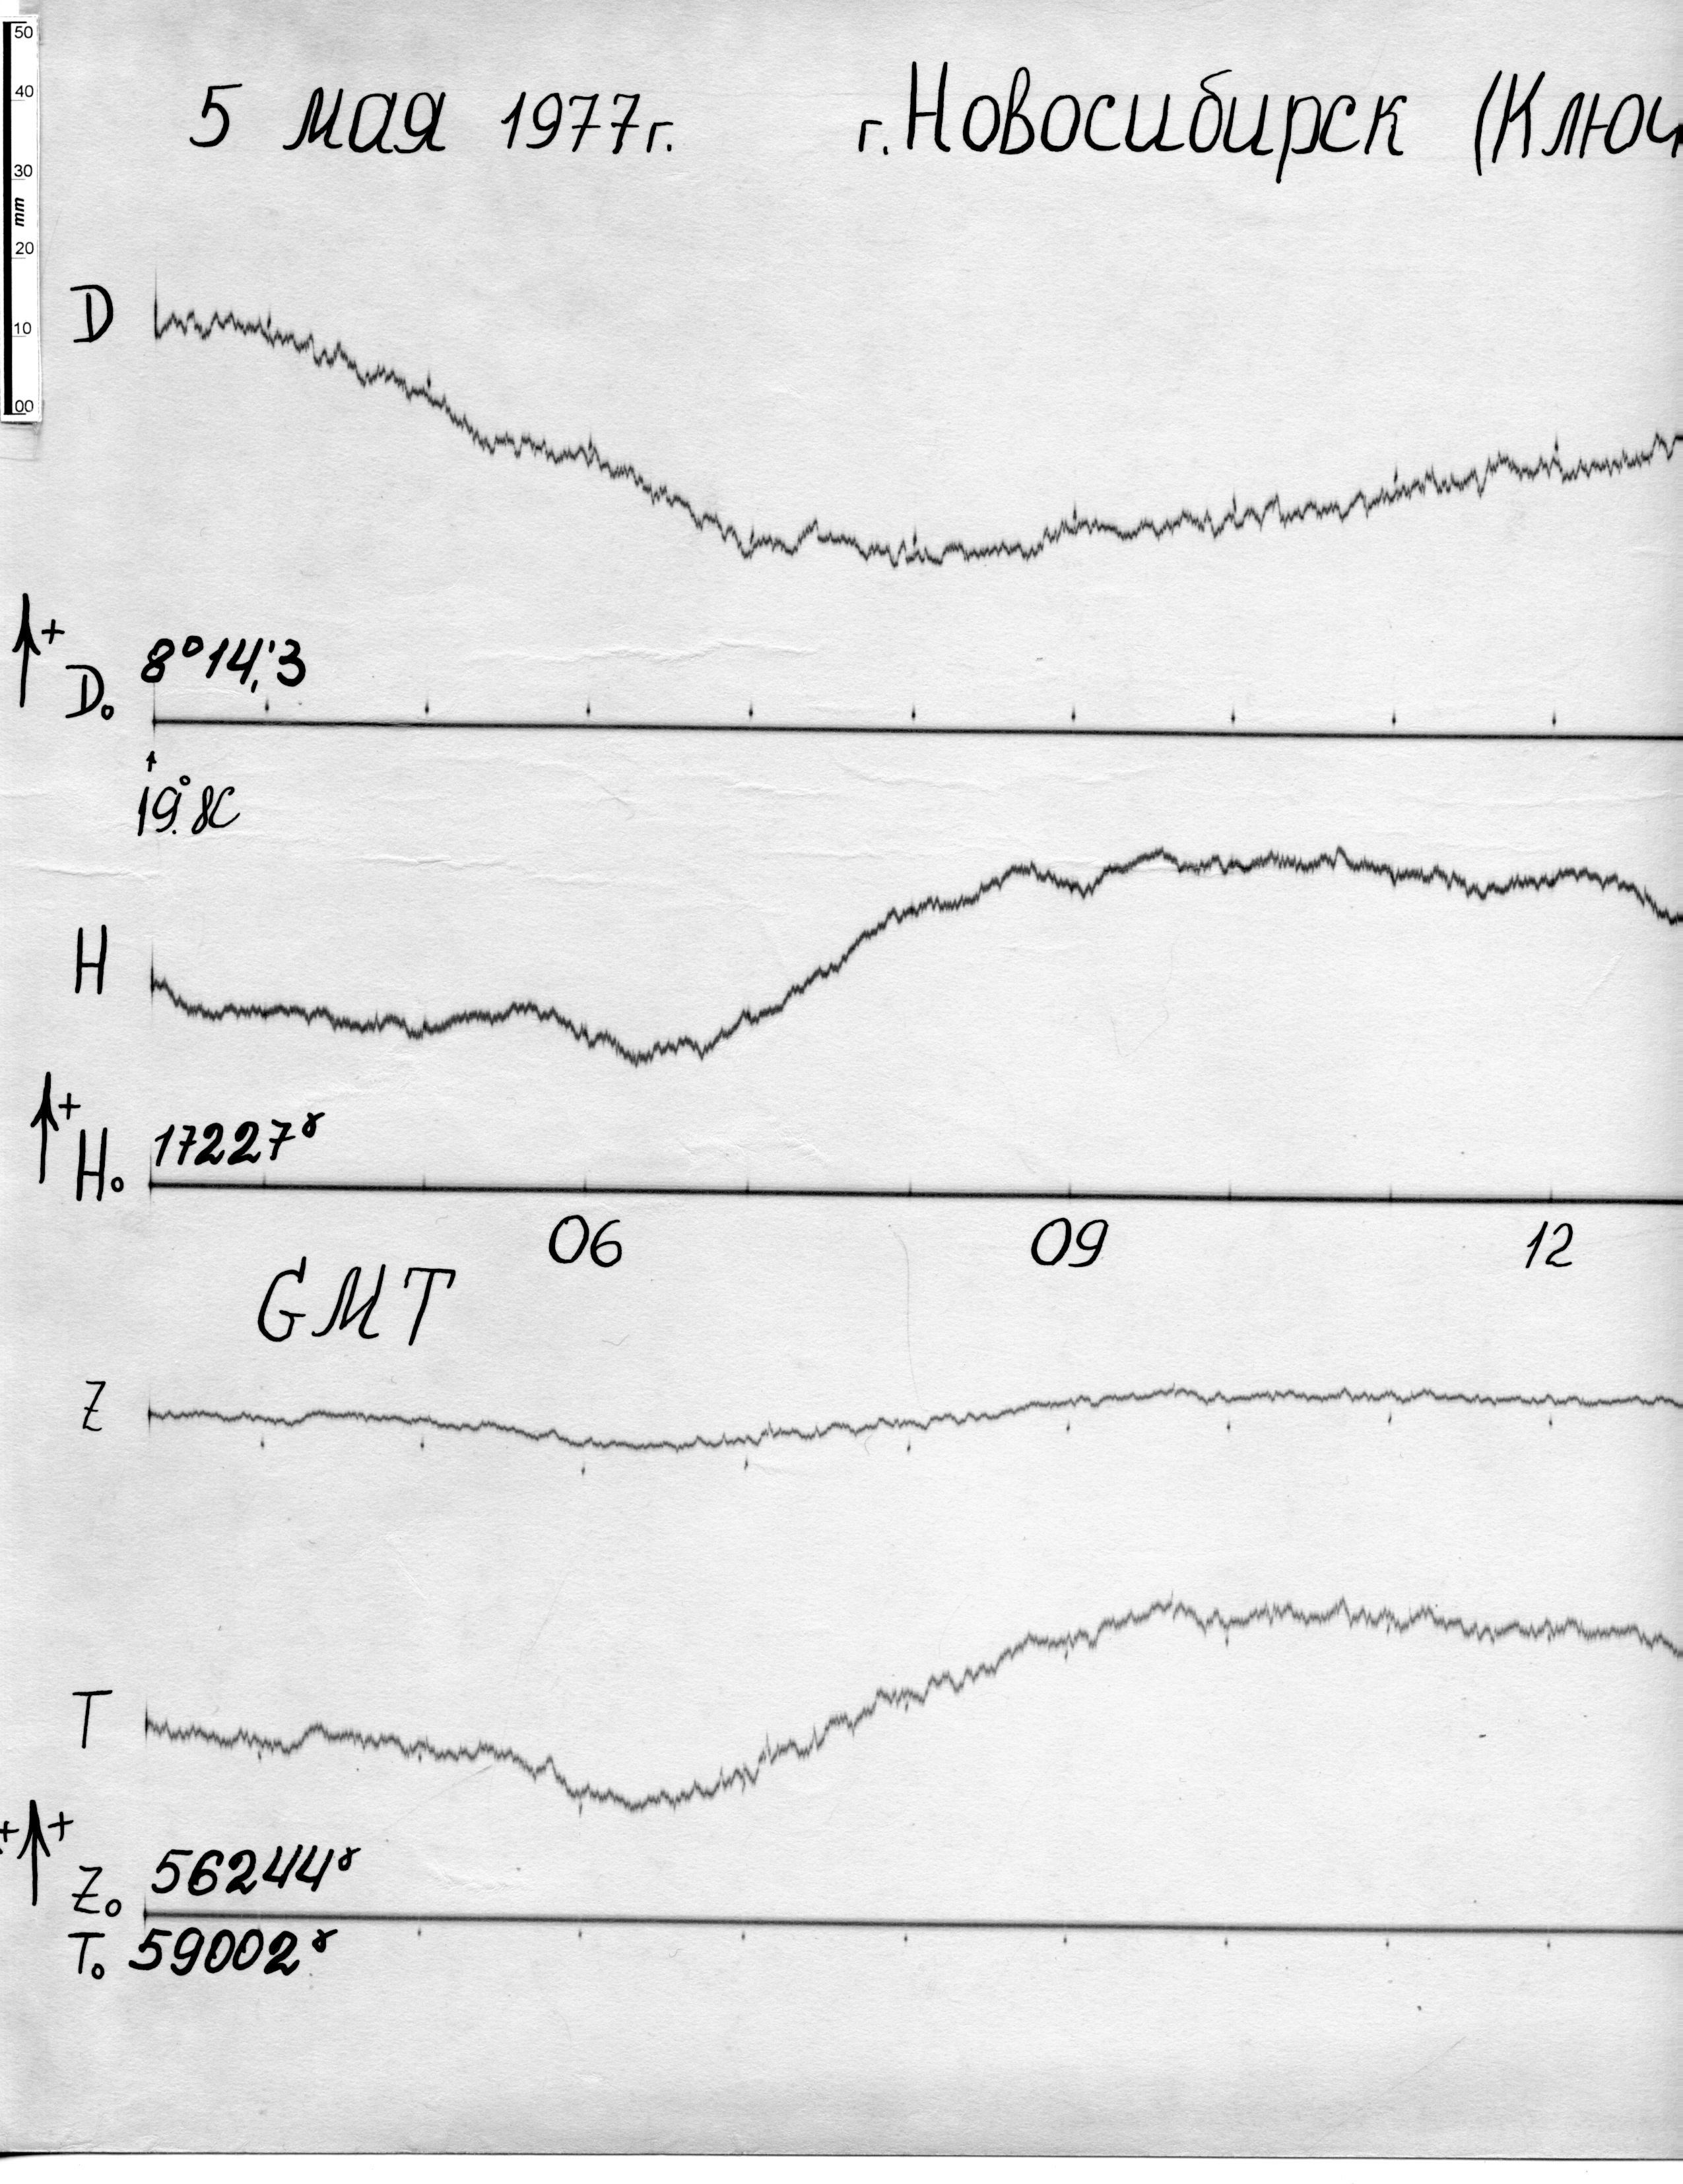 50
40
30
mm
20
10
00
5 мая 1977г. г. Новосибирск (Ключ
D
+
8°14,'3
D₀
19°.8C
H
+
17227ˠ
H₀
06 09 12
GMT
Z
T
+ +
56244ˠ
Z₀
T₀ 59002ˠ